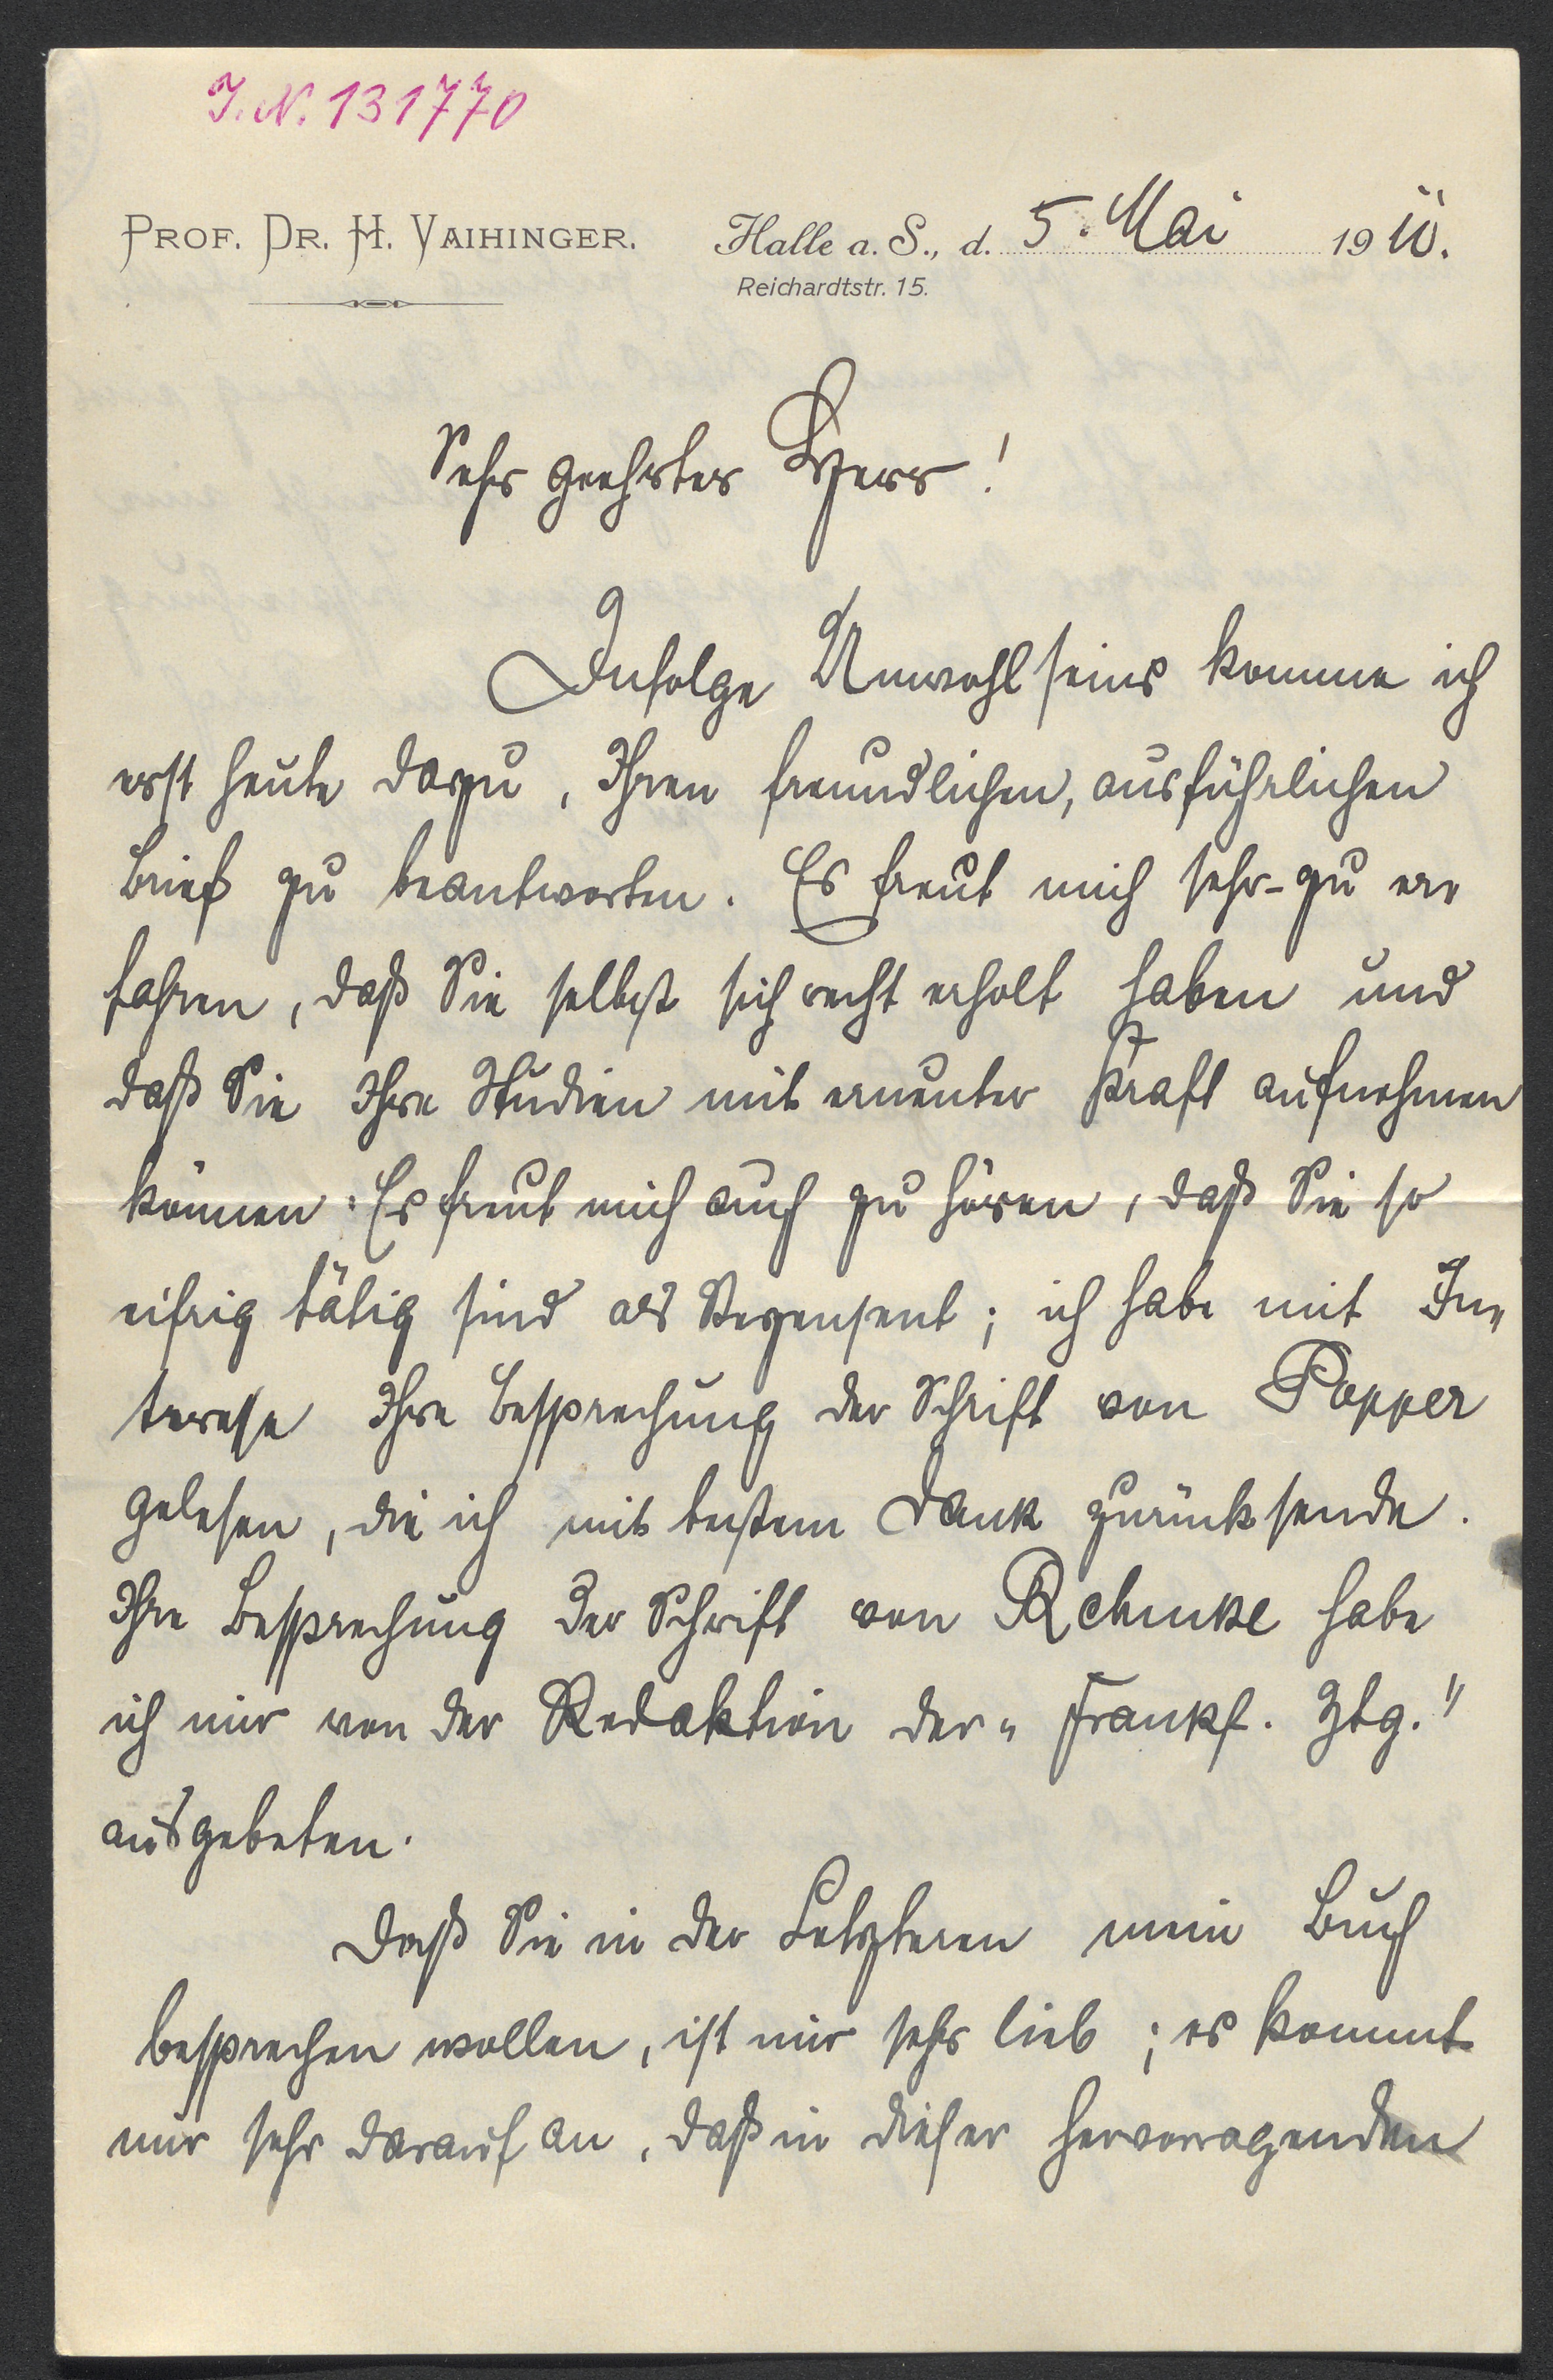 J. N. 131770
PROF. DR. H. VAIHINGER.
Halle a. S., d. 5. Mai 1911.
Reichardtstr. 15.
Sehr geehrter Herr!
Infolge Unwohlseins komme ich
erst heute dazu, Ihren freundlichen, ausführlichen
Brief zu beantworten. Es freut mich sehr zu er-
fahren, daß Sie selbst sich recht erholt haben und
daß Sie Ihre Studien mit erneuter Kraft aufnehmen
können. Es freut mich auch zu hören, daß Sie so
eifrig tätig sind als Rezensent; ich habe mit In-
teresse Ihre Besprechung der Schrift von Popper
gelesen, die ich mit bestem Dank zurücksende.
Ihre Besprechung der Schrift von Rehmke habe
ich mir von der Redaktion der „Frankf. Ztg."
ausgebeten.
Daß Sie in der Letzteren mein Buch
besprechen wollen, ist mir sehr lieb; es kommt
mir sehr darauf an, daß in dieser hervorragenden